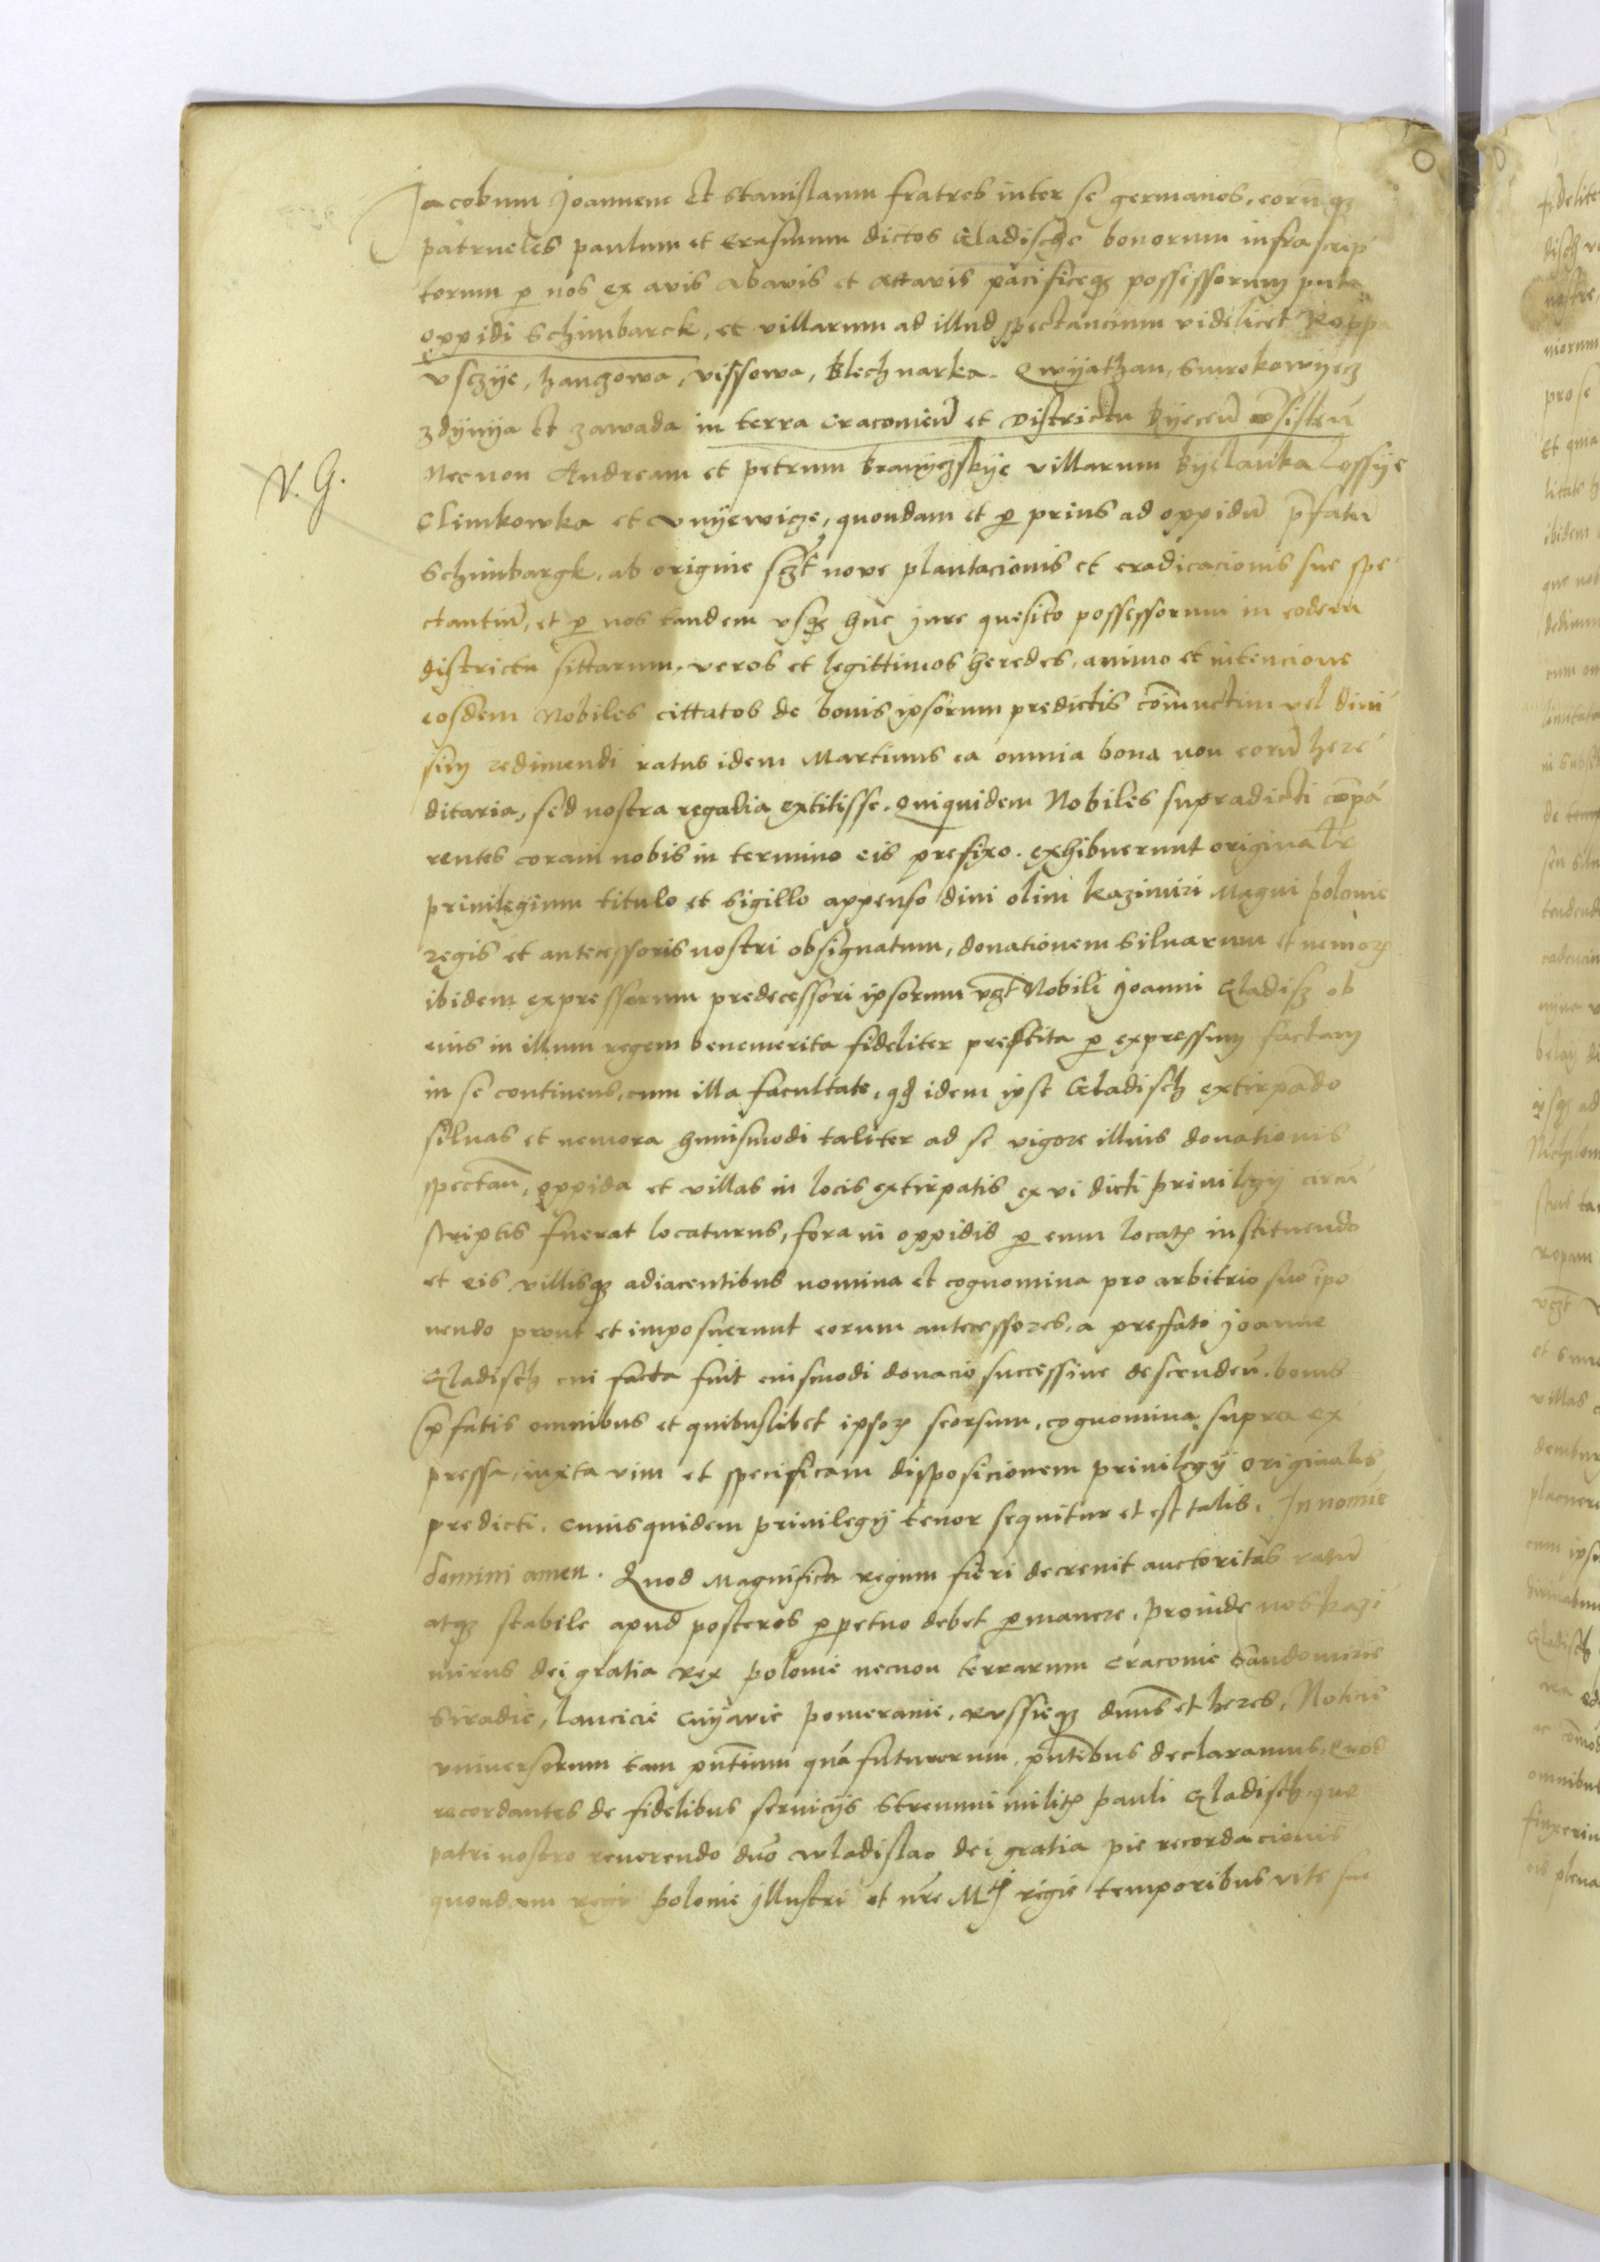 Jacobum Joannem Et Stanislaum fratres inter se germanos, eorūqȝ
patrueles paulum et Erasmum dictos Gladische bonorum infrascrip
torum p nos ex avis abavis et Attavis pacificeqȝ possessorum puta
oppidi Schimbarck, et villarum ad illud spectancium videlicet Roppa
Vsczye, hanczowa, vissowa, Blechnarka. Qwyathan, Smrokowyecz
zdynya Et zawada in terra Cracovień et Districtu Byeceń consisteń
Necnon Andream et petrum branyczskye villarum Byelanka Lossye
V. G.
Climkowka et Vnyewicze, quondam et p prius ad oppidū p̄fatū
Schimbargk, ab origine sczt nove plantacionis et eradicacionis sue spe
ctantiū, et p nos tandem vsqȝ huc jure quesito possessorum in eodem
districtu sittarum. veros et legittimos heredes, animo et intencione
eosdem Nobiles cittatos de bonis ipsorum predictis cōiunctim vel divi
sim redimendi ratus idem Martinus ea omnia bona non eorū here
ditaria, sed nostra regalia extitisse. Quiquidem Nobiles supradicti compa
rentes coram nobis in termino eis prefixo. exhibuerunt originale
privilegium titulo et sigillo appenso divi olim kazimiri Magni polonie
regis et antecessoris nostri obsignatum, donationem silvarum et nemorȝ
ibidem expressarum predecessori ipsorum vczt Nobili Joanni Gladisz ob
eius in illum regem benemerita fideliter prestita p expressum factam
in se continens, cum illa facultate, qd idem ipse Gladisch extirpādo
silvas et nemora huiusmodi taliter ad se vigore illius donationis
spectań, oppida et villas in locis extirpatis ex vi dicti privilegij circū
scriptis fuerat locaturus, fora in oppidis p eum locatȝ instituendo
et eis villisqȝ adiacentibus nomina et cognomina pro arbitrio suo īpo
nendo prout et imposuerunt eorum antecessores, a preffato Joanne
Gladisch cui facta fuit eiusmodi donacio successive descendeń. bonis
p̄fatis omnibus et quibuslibet ipsorȝ seorsum, cognomina supra ex
pressa, iuxta vim et specificam disposicionem privilegij originalis
predicti. Cuiusquidem privilegij tenor sequitur et est talis. In nomie
domini amen. Quod Magnifica regum fieri decrevit auctoritas ratū
atqȝ stabile apud posteros p petuo debet p manere. proinde nos kazi
mirus dei gratia Rex polonie necnon terrarum Cracovie Sandomirie
Siradie, lancicie Cuyavie pomeranie, Russieqȝ dnus et heres, Noticie
vniversorum tam pntium quā futurorum. pntibus declaramus, Quod
recordantes de fidelibus servicijs Strennui militȝ pauli Gladisch que
patri nostro reverendo dno wladislao dei gratia pie recordacionis
quondam regi polonie Jllustri et nre Mti regie temporibus vite sue